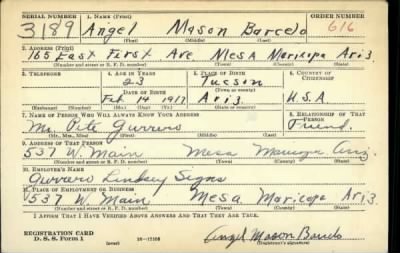 SERIAL NUMBER 1. NAME (Print) ORDER NUMBER
3189 Angel Mason Barcelo 616
(First) (Middle) (Last)
2. ADDRESS (Print)
165 East First Ave Mesa Maricopa Ariz
(Number and street or R. F. D. number) (Town) (County) (State)
3. TELEPHONE 4. AGE IN YEARS 5. PLACE OF BIRTH 6. COUNTRY OF CITIZENSHIP
23 Tucson
DATE OF BIRTH (Town or county)
Feb 14 1917 Ariz U.S.A
(Exchange) (Number) (Mo.) (Day) (Yr.) (State or country)
7. NAME OF PERSON WHO WILL ALWAYS KNOW YOUR ADDRESS 8. RELATIONSHIP OF THAT PERSON
Mr. Pete Guerrero Friend
(Mr., Mrs., Miss) (First) (Middle) (Last)
9. ADDRESS OF THAT PERSON
537 W. Main Mesa Maricopa Ariz.
(Number and street or R. F. D. number) (Town) (County) (State)
10. EMPLOYER'S NAME
Lindsey Signs
11. PLACE OF EMPLOYMENT OR BUSINESS
537 W. Main Mesa Maricopa Ariz
(Number and street or R. F. D. number) (Town) (County) (State)
I AFFIRM THAT I HAVE VERIFIED ABOVE ANSWERS AND THAT THEY ARE TRUE.
REGISTRATION CARD
D. S. S. Form 1 Angel Mason Barcelo
(Registrant's signature)